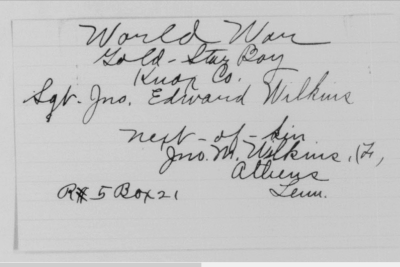 World War
Gold-Star Boy
Knox Co.
Sgt. Jno. Edward Wilkins
next-of-kin
Jno. M. Wilkins, (F,
Athens
R#5 Box 21 Tenn.